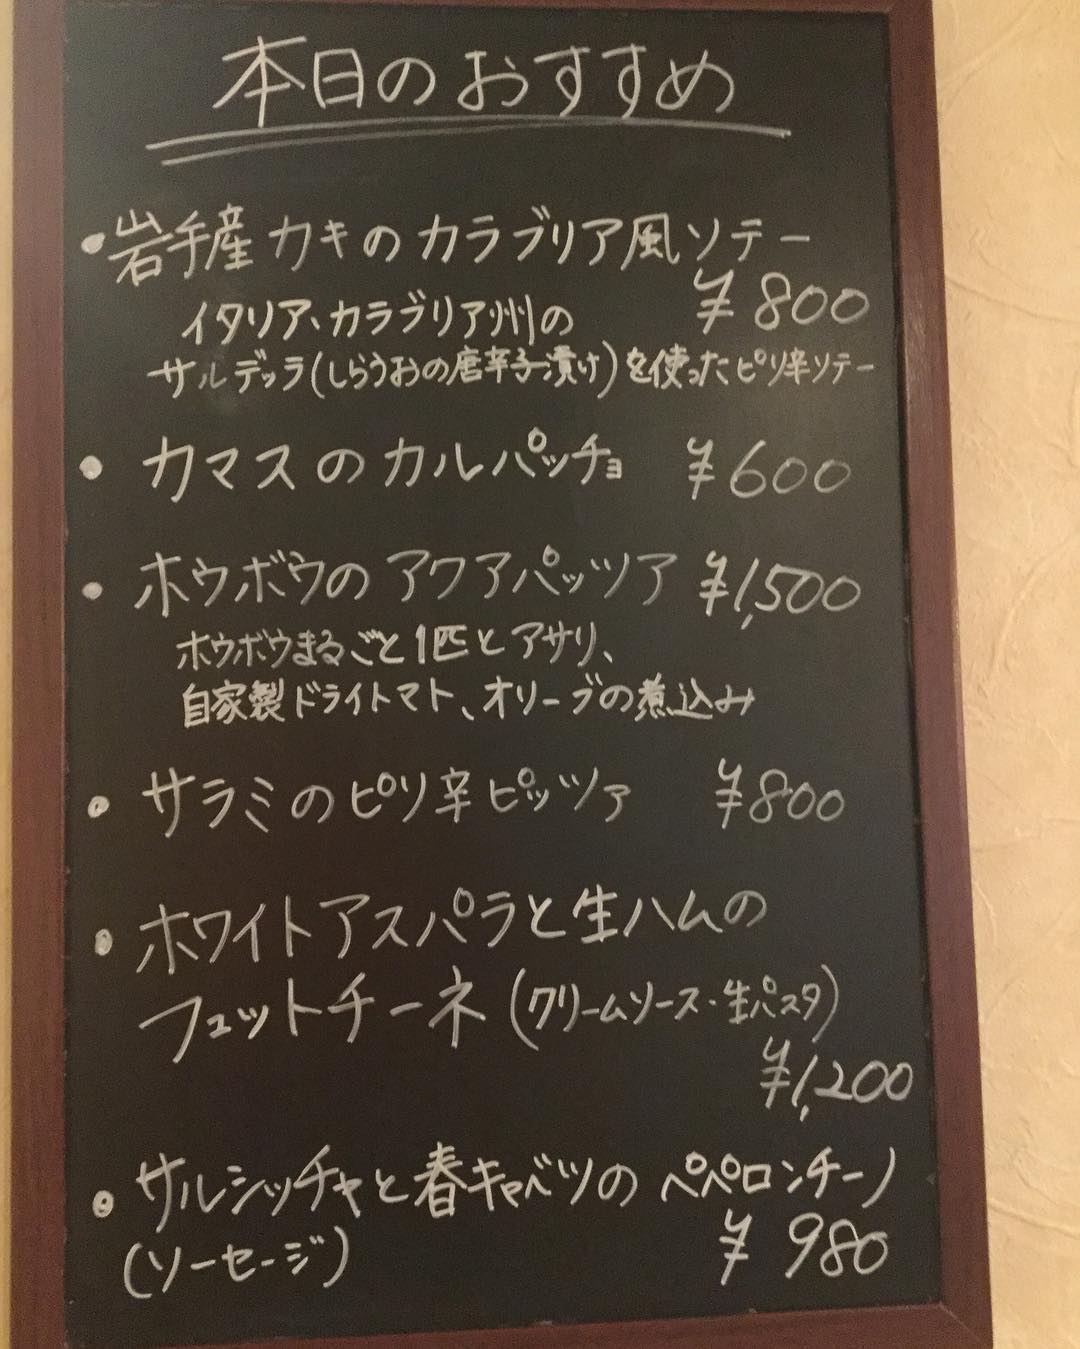 本日のおすすめ
・岩手産カキのカラブリア風ソテー
¥800
イタリア、カラブリア州の
サルデッラ(しらうおの唐辛子漬け)を使ったピリ辛ソテー
・カマスのカルパッチョ ¥600
・ホウボウのアクアパッツア ¥1,500
ホウボウまるごと1匹とアサリ、
自家製ドライトマト、オリーブの煮込み
・サラミのピリ辛ピッツァ ¥800
・ホワイトアスパラと生ハムの
フェットチーネ(クリームソース・生パスタ)
¥1,200
・サルシッチャと春キャベツのペペロンチーノ
(ソーセージ) ¥980